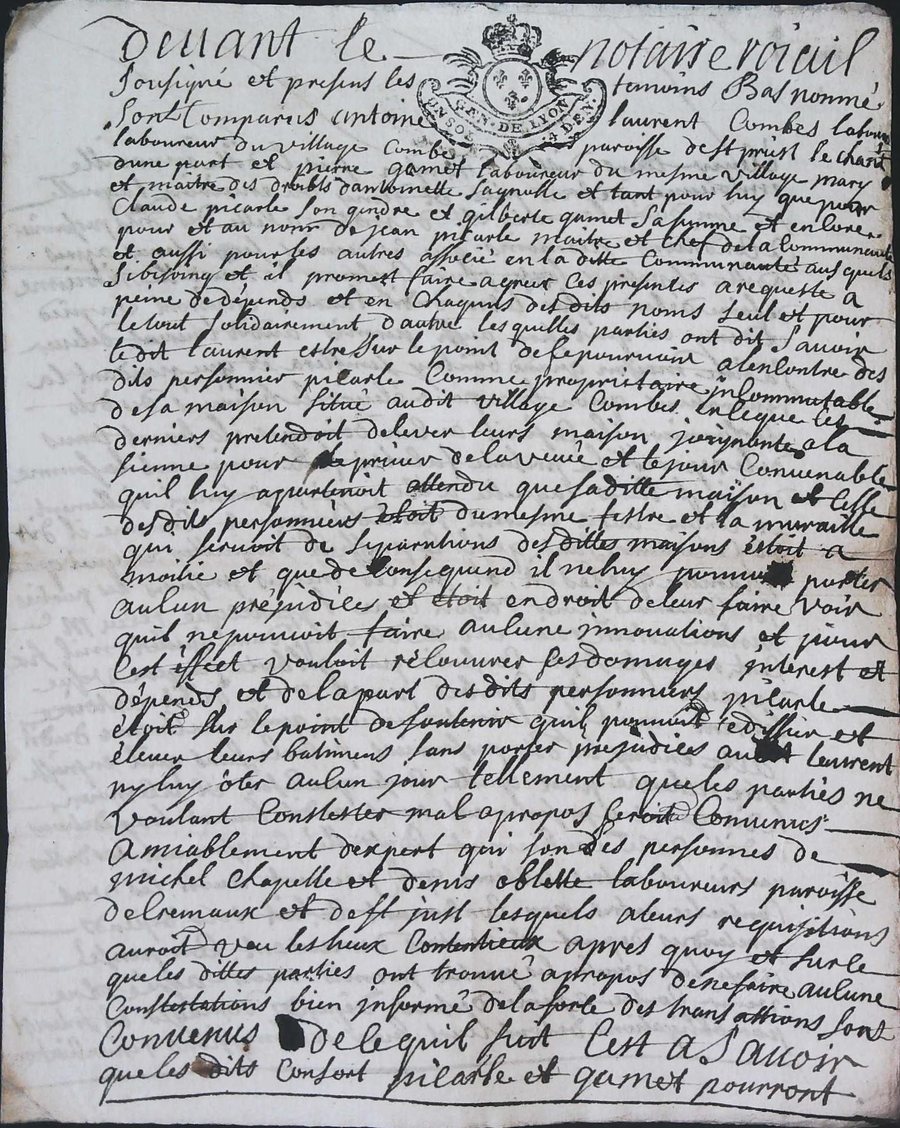 devant le notaire roiail
Sousigné et presens les temoins Bas nommé
Sont Comparus antoine laurent Combes
GEN. DE LYON
4 DEN.
laboureur du village Combe paroisse de st priest le
dune part et pierre gamet laboureur du mesme village mary
et maitre des droibts dantoinette et tant pour luy que pour
Claude picarle son gendre et gilberte gamet sa femme et encore
pour et au nom de jean picarle maitre et chef de la Communauté
et aussi pour les autres associé en la ditte Communauté aus quels
et il promest faire agreer Ces presentes a requeste a
peine de dépends et en Chaquns des dits noms seul et pour
le tout solidairement dautre lesquelles parties ont dit Savoir
le dit laurent estre sur le point de se pourvoir alencontre des
dits personnier picarle Comme propriettaire jnCommutable
de sa maison situé audit village Combes Ces
derniers pretendoit delever leurs maison joignante a la
sienne pour le priver de la veüe et le jour Convenable
quil luy apartenoit attendu que sa ditte maison et Celle
des dits personniers étoit du mesme festre et la muraille
qui servoit de separations des dittes maisons étoit a
moitié et que de Consequend il ne luy pouvoit porter
auCun préjudices et étoit en droit de leur faire voir
quil ne pouvoit faire auCune jnnovations et pour
Cest éffect vouloit réCouvrer ses domages jnterest et
dépends et de la part des dits personniers picarle
étoit sur le point de soutenir quil pouvoit édiffier et
élever leurs batimens sans porter prejudices audit laurent
ny luy ôter auCun jour tellement que les parties ne
voulant Contester mal apropos seroit Convenus
Amiablement dexpert qui son des personnes de
michel Chapelle et denis oblette laboureurs paroisse
de Cremaux et de st just lesquels a leurs requisitions
auroit veu les lieux Contentieux apres quoy et sur le
que les dittes parties ont trouvé apropos de ne faire auCune
Contestations bien jnformé de la forle des transactions sont
Convenus de Ce quil suit Cest a Savoir
que les dits Consort picarle et gamet pourront